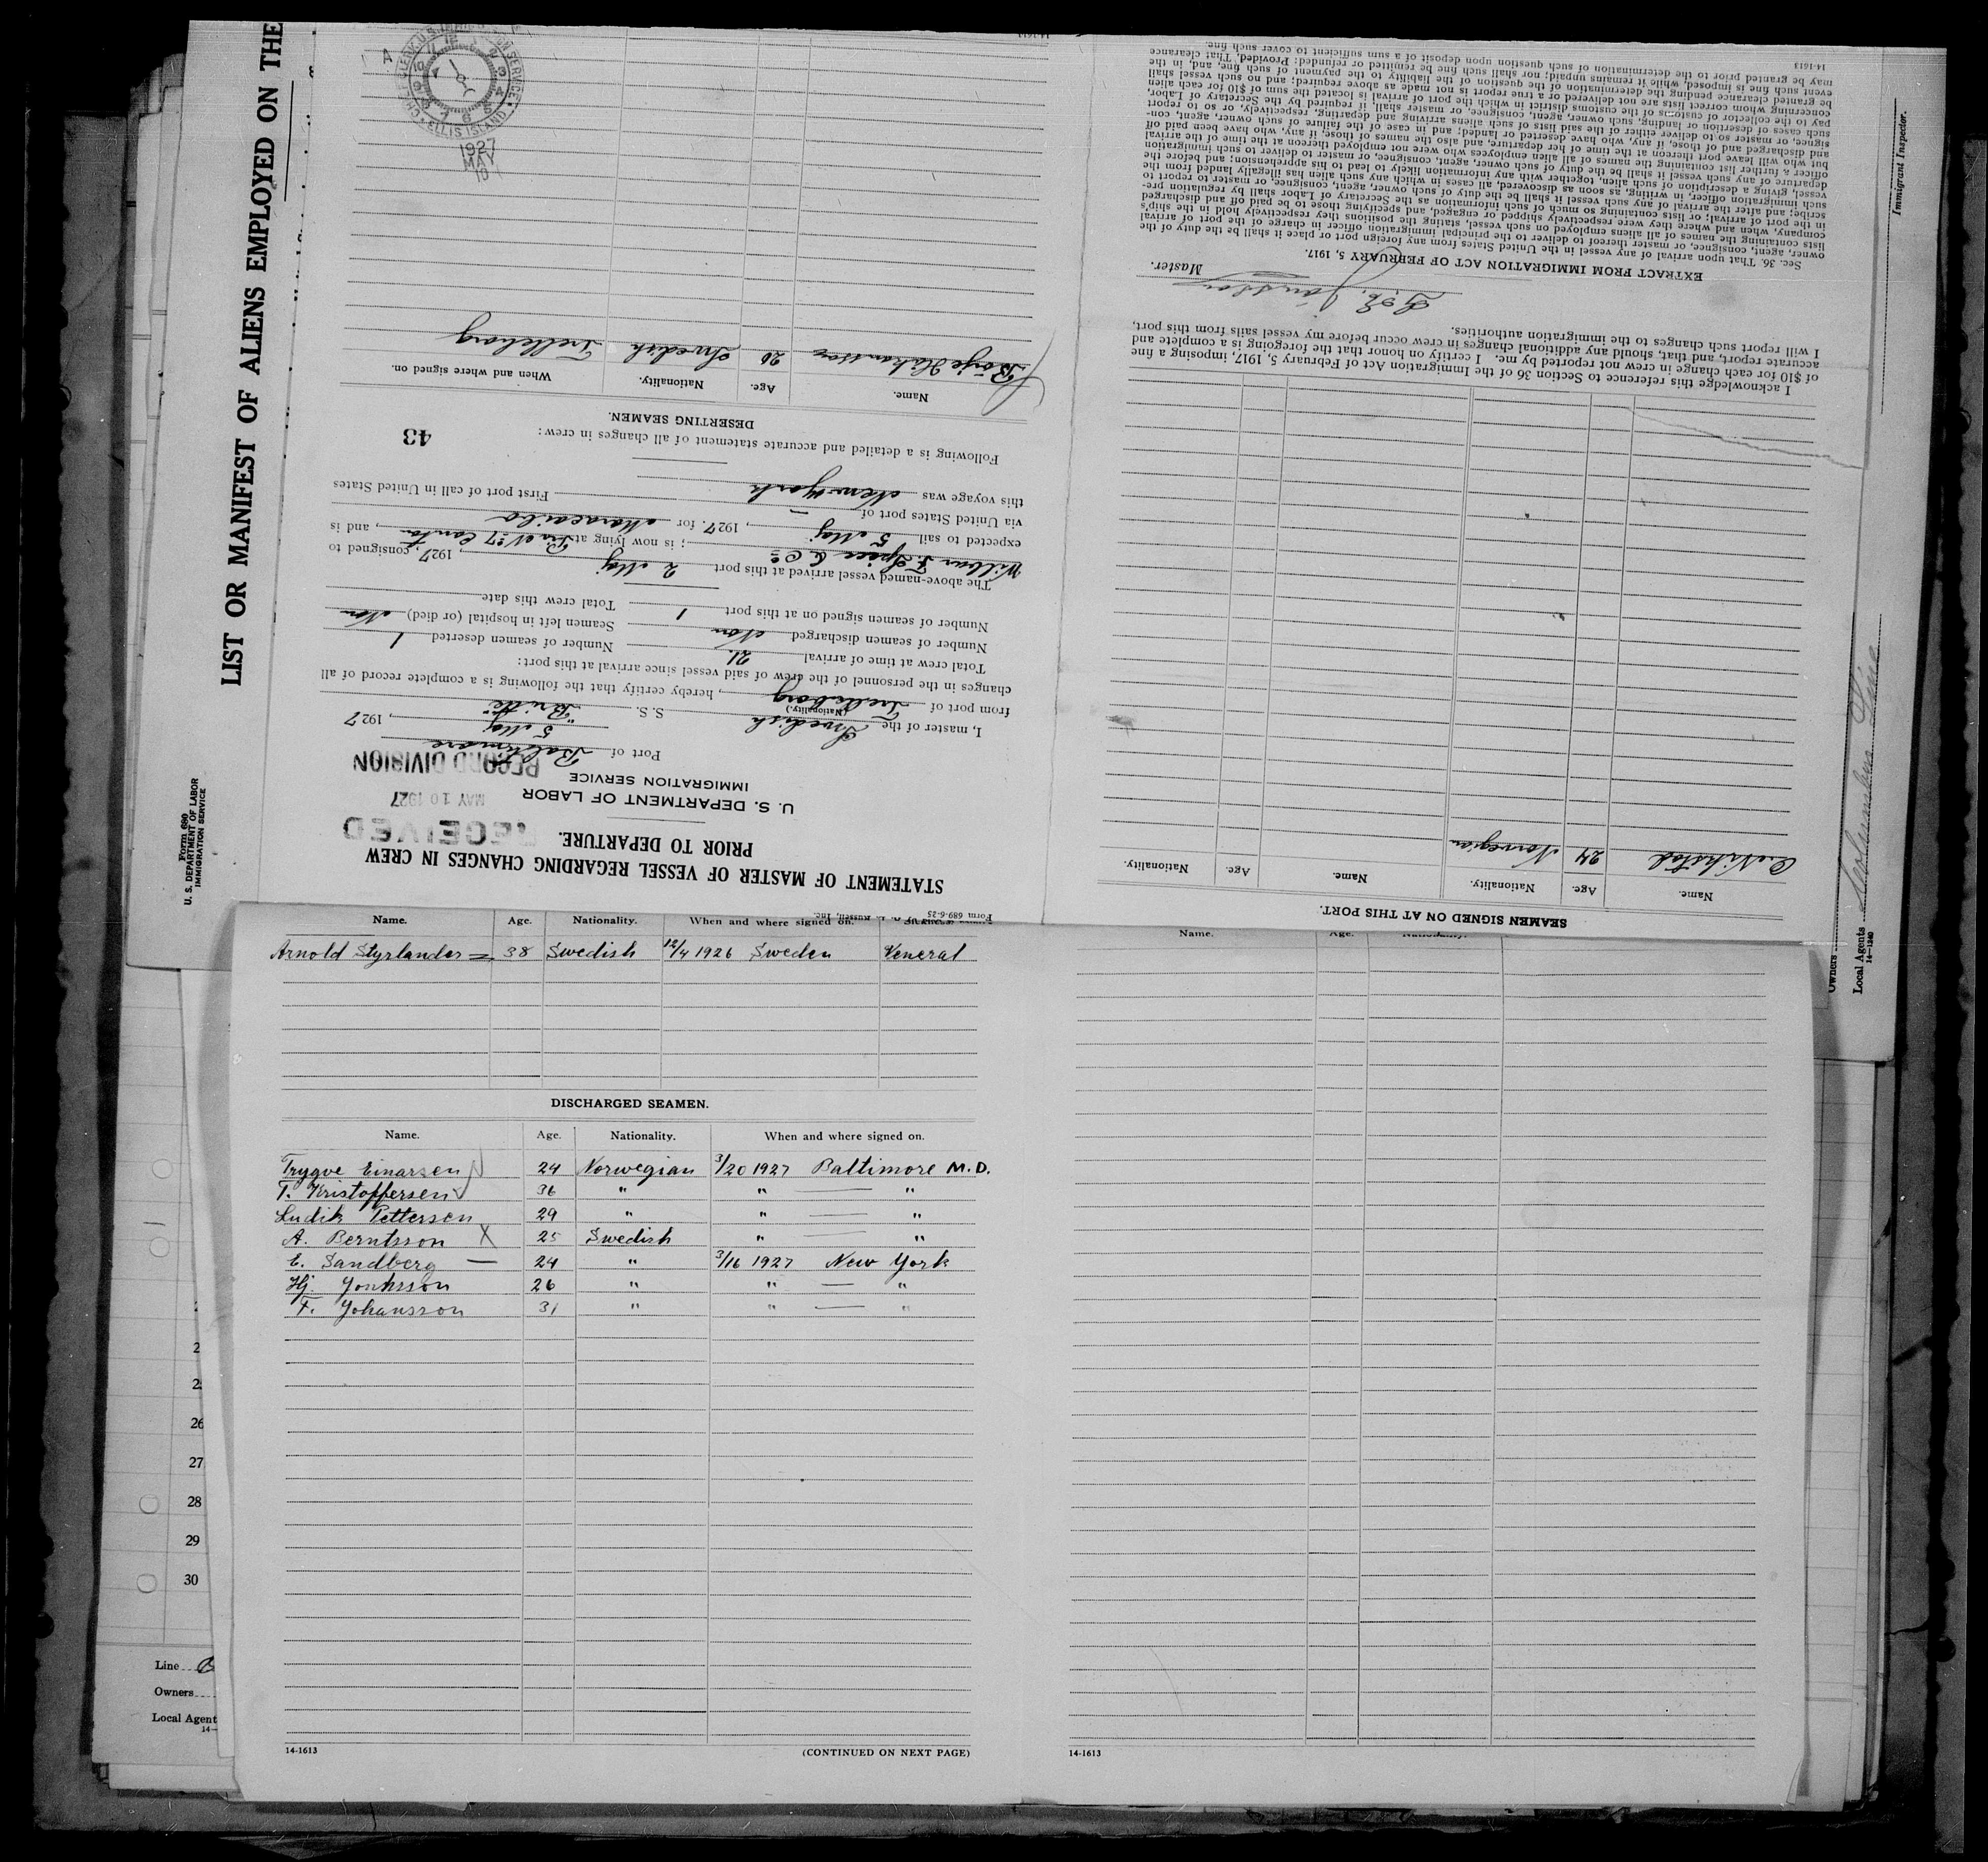 LIST OR MANIFEST OF ALIENS EMPLOYED ON THE
Form 680
U. S. DEPARTMENT OF LABOR
IMMIGRATION SERVICE
Form 689-6-25
STATEMENT OF MASTER OF VESSEL REGARDING CHANGES IN CREW
PRIOR TO DEPARTURE.
RECEIVED
MAY 10 1927
RECORD DIVISION
U. S. DEPARTMENT OF LABOR
IMMIGRATION SERVICE
Port of Baltimore
5 Maj, 1927
I, master of the Swedish S.S. "Britt"
(Nationality.)
from port of Trelleborg, hereby certify that the following is a complete record of all
changes in the personnel of the crew of said vessel since arrival at this port:
Total crew at time of arrival 21. Number of seamen deserted 1
Number of seamen discharged Non Seamen left in hospital (or died) Non
Number of seamen signed on at this port 1 Total crew this date
The above-named vessel arrived at this port 2 Maj, 1927, consigned to
Wilbur F. Spice & Co; is now lying at Pier No 7 Canton, and is
expected to sail 5 Maj, 1927. for Maracaibo
via United States port of — First port of call in United States
this voyage was New York
Following is a detailed and accurate statement of all changes in crew:
43
DESERTING SEAMEN.
Name. Age. Nationality. When and where signed on.
Börje Håkansson 20 Swedish Trelleborg
ELLIS ISLAND
1927
MAY
10
SEAMEN SIGNED ON AT THIS PORT.
Name. Age. Nationality. Name. Age. Nationality.
O. Nikstad 24 Norvegian
I acknowledge this reference to Section 36 of the Immigration Act of February 5, 1917, imposing a fine
of $10 for each change in crew not reported by me. I certify on honor that the foregoing is a complete and
accurate report, and that, should any additional changes in crew occur before my vessel sails from this port,
I will report such changes to the immigration authorities.
Master.
EXTRACT FROM IMMIGRATION ACT OF FEBRUARY 5, 1917.
Sec. 36. That upon arrival of any vessel in the United States from any foreign port or place it shall be the duty of the
owner, agent, consignee, or master thereof to deliver to the principal immigration officer in charge of the port of arrival
lists containing the names of all aliens employed on such vessel, stating the positions they respectively hold in the ship's
company, when and where they were respectively shipped or engaged, and specifying those to be paid off and discharged
in the port of arrival; or lists containing so much of such information as the Secretary of Labor shall by regulation pre-
scribe; and after the arrival of any such vessel it shall be the duty of such owner, agent, consignee, or master to report to
such immigration officer, in writing, as soon as discovered, all cases in which any such alien has illegally landed from the
vessel, giving a description of such alien, together with any information likely to lead to his apprehension; and before the
departure of any such vessel it shall be the duty of such owner, agent, consignee, or master to deliver to such immigration
officer a further list containing the names of all alien employees who were not employed thereon at the time of the arrival
but who will leave port thereon at the time of her departure, and also the names of those, if any, who have been paid off
and discharged and of those, if any, who have deserted or landed; and in case of the failure of such owner, agent, con-
signee, or master so to deliver either of the said lists of such aliens arriving and departing, respectively, or so to report
such cases of desertion or landing, such owner, agent, consignee, or master shall, if required by the Secretary of Labor,
pay to the collector of customs of the customs district in which the port of arrival is located the sum of $10 for each alien
concerning whom correct lists are not delivered or a true report is not made as above required; and no such vessel shall
be granted clearance pending the determination of the question of the liability to the payment of such fine, and, in the
event such fine is imposed, while it remains unpaid; nor shall such fine be remitted or refunded: Provided, That clearance
may be granted prior to the determination of such question upon deposit of a sum sufficient to cover such fine.
14-1613
Immigrant Inspector.
Owners
Local Agents
14-1240
Name. Age. Nationality. When and where signed on.
Arnold Styrlander = 38 Swedish 12/4 1926 Sweden Veneral
DISCHARGED SEAMEN.
Name. Age. Nationality. When and where signed on.
Trygve Einarsen 24 Norwegian 3/20 1927 Baltimore M.D.
T. Kristoffersen 36 " " — "
Ludik Pettersen 29 " " — "
A. Berntsson X 25 Swedish " — "
E. Sandberg — 24 " 3/16 1927 New York
Hj. Yonhsson 26 " " — "
F. Yohansson 31 " " — "
14-1613
(CONTINUED ON NEXT PAGE)
Name. Age. Nationality.
14-1613
26
27
28
29
30
Line
Owners
Local Agent
14-